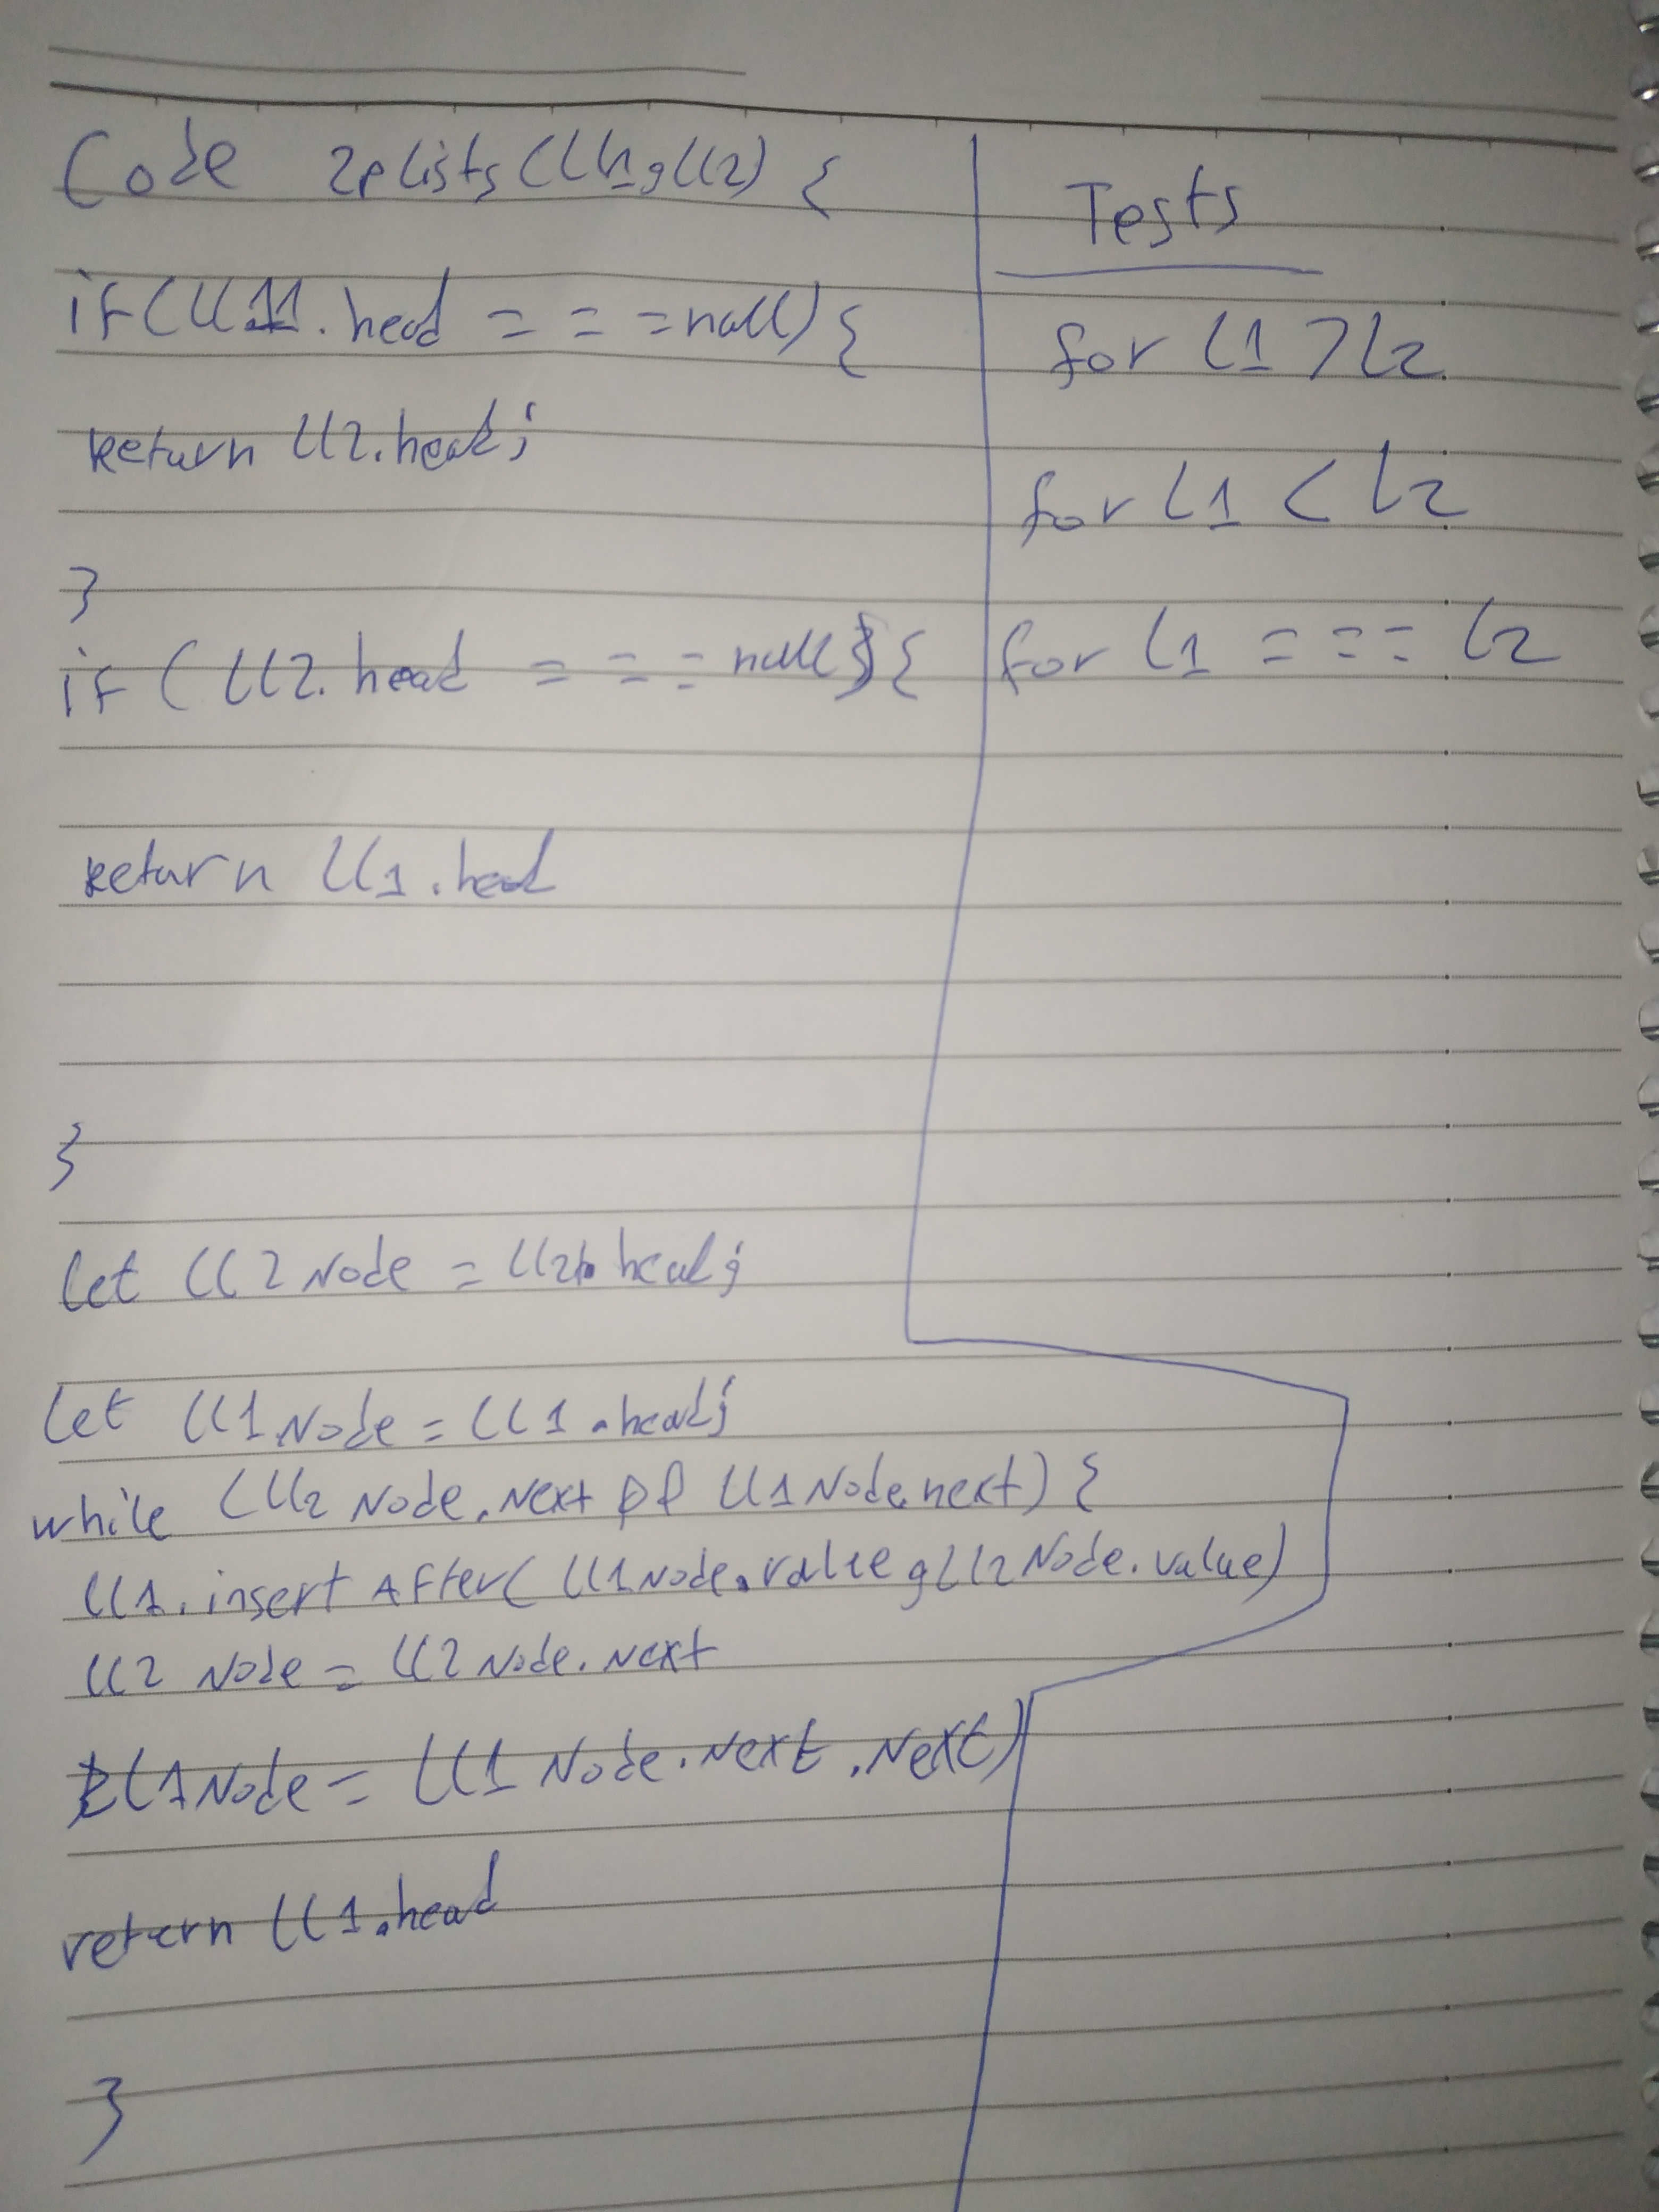 Code zplists(ll1,ll2) {
if(ll11.head === null){
return ll2.head;
}
if (ll2.head === null){
return ll1.head
}
let ll2Node = ll2.head;
let ll1Node = ll1.head;
while (ll2Node.Next && ll1Node.next) {
ll1.insertAfter(ll1Node.value,ll2Node.value)
ll2Node = ll2Node.Next
ll1Node = ll1Node.Next.Next)
return ll1.head
}
Tests
for l1 > l2
for l1 < l2
for l1 === l2